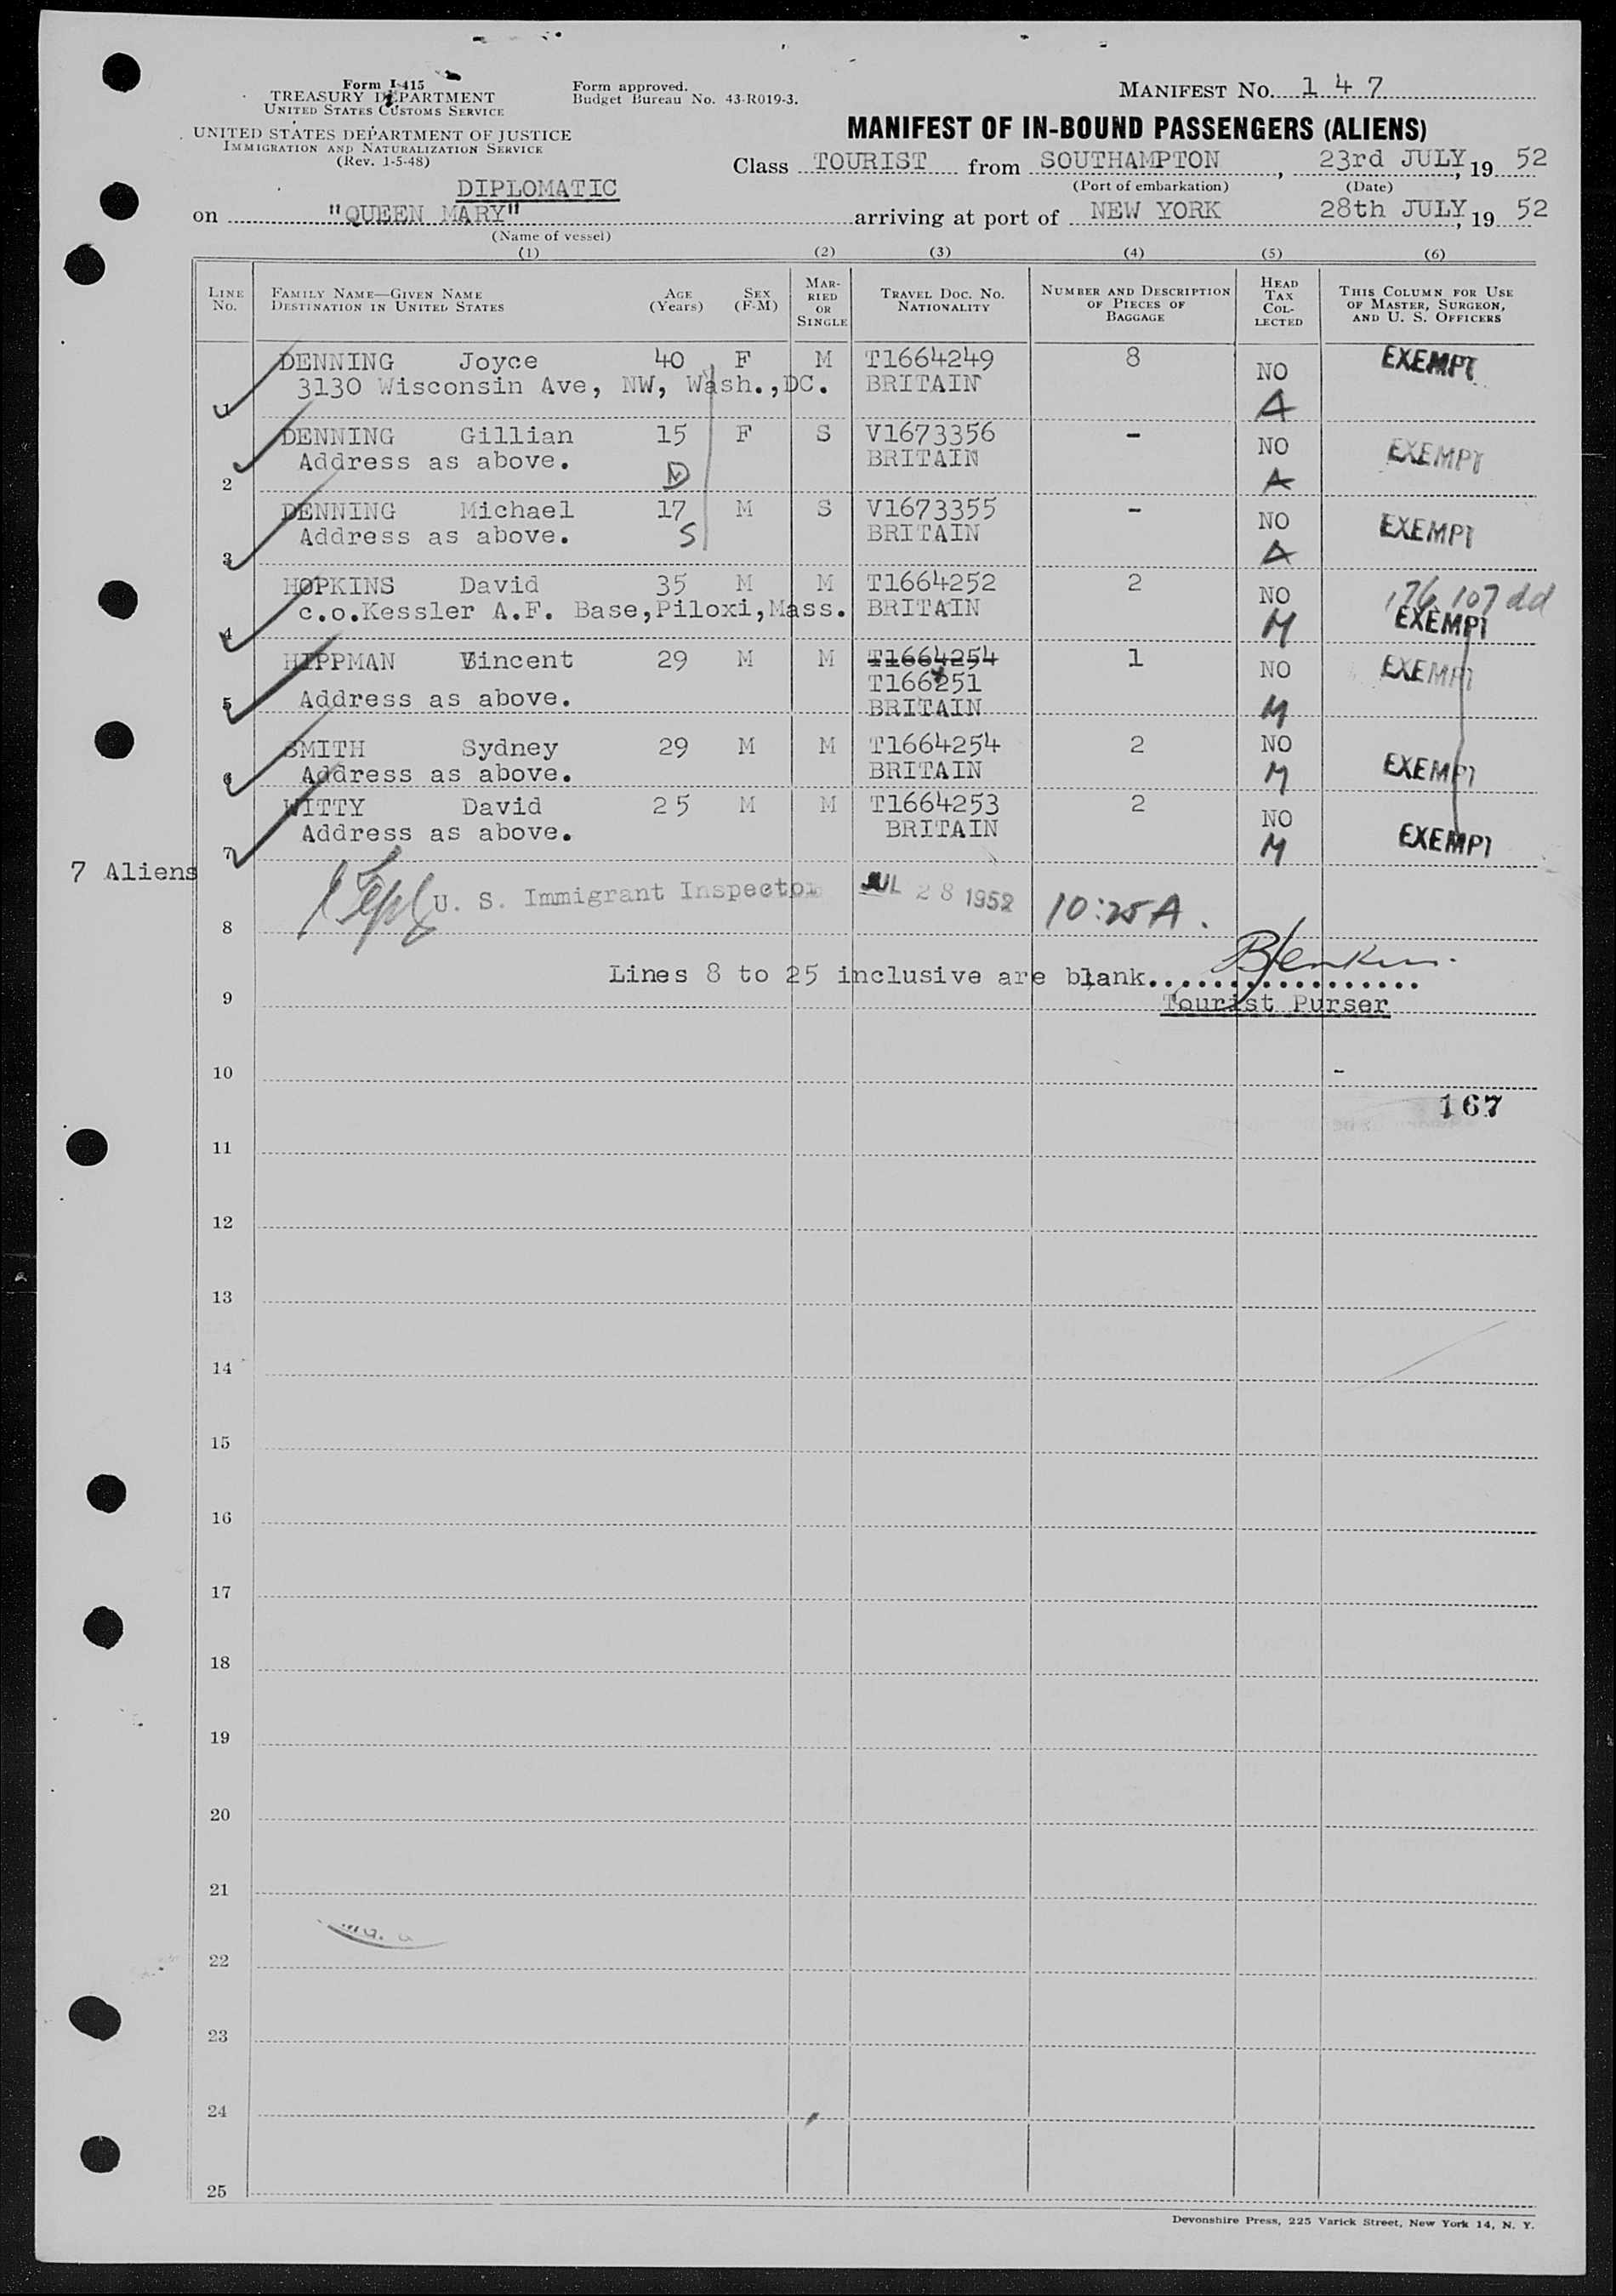 Form I-415
TREASURY DEPARTMENT
UNITED STATES CUSTOMS SERVICE
UNITED STATES DEPARTMENT OF JUSTICE
IMMIGRATION AND NATURALIZATION SERVICE
(Rev. 1-5-48)
Form approved.
Budget Bureau No. 43-R019-3.
MANIFEST NO. 1 4 7
MANIFEST OF IN-BOUND PASSENGERS (ALIENS)
Class TOURIST from SOUTHAMPTON, 23rd JULY, 19 52
(Port of embarkation) (Date)
DIPLOMATIC
on "QUEEN MARY" arriving at port of NEW YORK 28th JULY, 19 52
(Name of vessel)
(1) (2) (3) (4) (5) (6)
LINE NO. FAMILY NAME—GIVEN NAME DESTINATION IN UNITED STATES AGE (Years) SEX (F-M) MARRIED OR SINGLE TRAVEL DOC. NO. NATIONALITY NUMBER AND DESCRIPTION OF PIECES OF BAGGAGE HEAD TAX COLLECTED THIS COLUMN FOR USE OF MASTER, SURGEON, AND U. S. OFFICERS
DENNING Joyce 40 F M T1664249 8 NO EXEMPT
1 3130 Wisconsin Ave, NW, Wash.,DC. BRITAIN A
DENNING Gillian 15 F S V1673356 - NO EXEMPT
2 Address as above. D BRITAIN A
DENNING Michael 17 M S V1673355 - NO EXEMPT
3 Address as above. S BRITAIN A
HOPKINS David 35 M M T1664252 2 NO 176 107 dd
4 c.o.Kessler A.F. Base,Piloxi,Mass. BRITAIN M EXEMPT
HIPPMAN Vincent 29 M M T1664254 1 NO EXEMPT
T166251
5 Address as above. BRITAIN M
SMITH Sydney 29 M M T1664254 2 NO EXEMPT
6 Address as above. BRITAIN M
WITTY David 25 M M T1664253 2 NO EXEMPT
7 Address as above. BRITAIN M
7 Aliens
U. S. Immigrant Inspector JUL 28 1952 10:25 A.
8
Lines 8 to 25 inclusive are blank.................
9 Tourist Purser
10
167
11
12
13
14
15
16
17
18
19
20
21
22
23
24
25
Devonshire Press, 225 Varick Street, New York 14, N. Y.